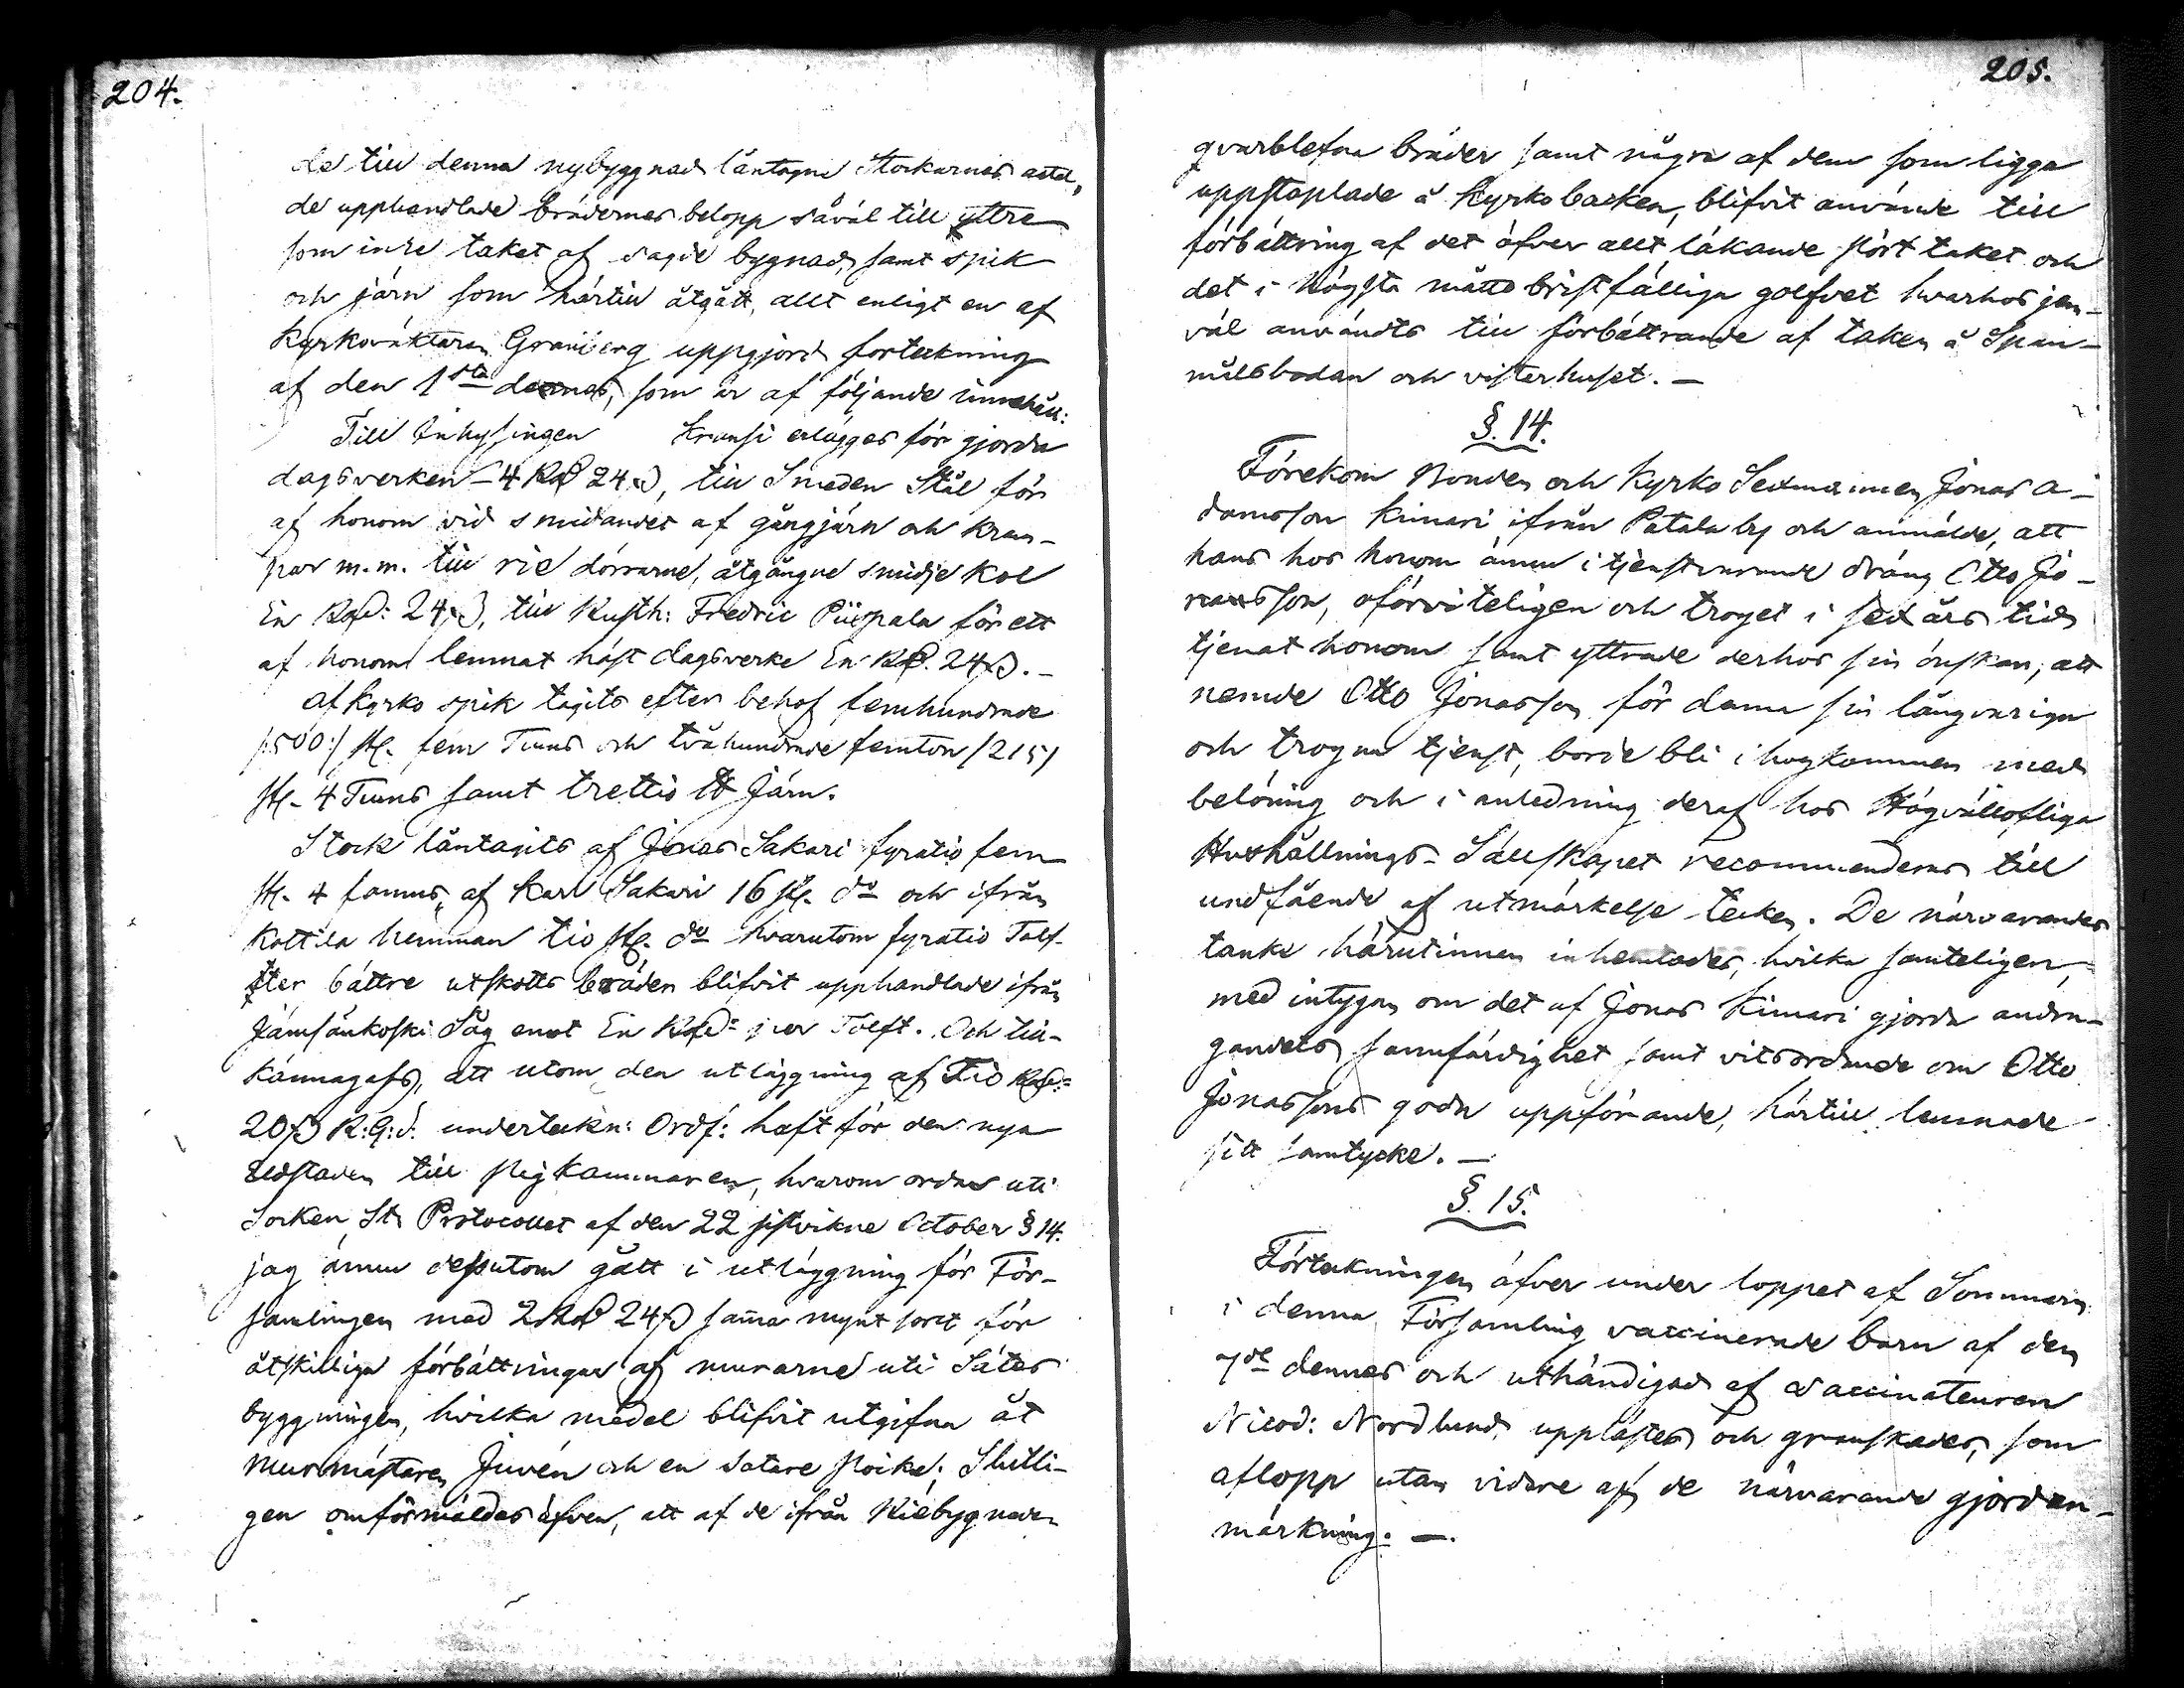 204.
de till denna nybyggnad låntagne Stockarnas antal,
de upphandlade brädernes belopp såväl till yttre
som inre taket af sagde bygnad, samt spik
och järn som härtill åtgått, allt enligt en af
Kyrkoväktaren Granberg uppgjord forteckning
af den 1sta dennes, som är af följande innehåll:
Till Inhysingen Kransi erlägges för gjorda
dagsverken 4 Rd 24 ß, till Smeden Stål för
af honom vid smidandet af gångjärn och kram-
par m.m. till rie dörrarne, åtgångne smidje kol
En Rd: 24 ß, till Rusth: Fredric Piispala för ett
af honom lemnat häst dagsverke En Rd. 24 ß. -
Af kyrko spik tagits efter behof femhundrade
/:500:/ st. fem Tums och tvåhundrade femton /215/
st. 4 Tums samt trettio ℔ Järn.
Stock låntagits af Jonas Sakari fyratio fem
st. 4 famns, af Karl Sakari 16 st. do och ifrån
Kottila hemman tio st. do hvarutom fyratio Tolf-
ter bättre utskotts bräden blifvit upphandlade ifrån
Jämsänkoski Såg emot En Rd: per Tolft. Och till-
kännagafs, att utom den utläggning af Tio Rd:
20 ß R:G:d. undertekn: Ordf: haft för den nya
eldstaden till stigkammaren, hvarom ordas uti
Socken St: Protocollet af den 22 sistvikne October § 14.
jag ännu dessutom gått i utläggning för För-
samlingen med 2 Rd 24 ß samma mynt sort för
åtskilliga förbättringar af murarne uti Säter
byggningen, hvilka medel blifvit utgifna åt
Murmästaren Juvén och en Sotare poike; Slutli-
gen omförmäldes äfven, att af de ifrån Riebygnaden
205.
qvarblefna bräder samt några af dem som ligga
uppstaplade å Kyrkobacken, blifvit använde till
förbättring af det öfver allt läkande pört taket och
det i högsta måtto bristfälliga golfvet hvarhos jem-
väl användts till förbättrande af taken å Span-
målsbodan och visterhuset. -
§. 14.
Förekom Bonden och Kyrko Sexmannen Jonas A-
damsson Kimari ifrån Patala by och anmälde, att
hans hos honom ännu i tjenstvarande dräng Otto Jo-
nasson, oförviteligen och troget i sex års tid
tjenat honom samt yttrade derhos sin önskan, att
nemde Otto Jonasson för denna sin långvariga
och trogna tjenst, borde bli ihogkommen med
belöning och i anledning deraf hos Högvällofliga
Hushållnings-Sällskapet recommenderas till
undfående af utmärkelse tecken. De närvarandes
tanke härutinnan inhemtades, hvilka samteligen,
med intygan om det af Jonas Kimari gjorda andra-
gandets sannfärdighet samt vitsordande om Otto
Jonassons goda uppförande, härtill lemnade
sitt samtycke. -
§. 15.
Förteckningen öfver under loppet af Sommaren
i denna Församling vaccinerade barn af den
7de dennes och uthändigad af Vaccinateuren
Nicod: Nordlund, upplästes och granskades, som
aflopp utan vidare af de närvarande gjord an-
märkning. -.